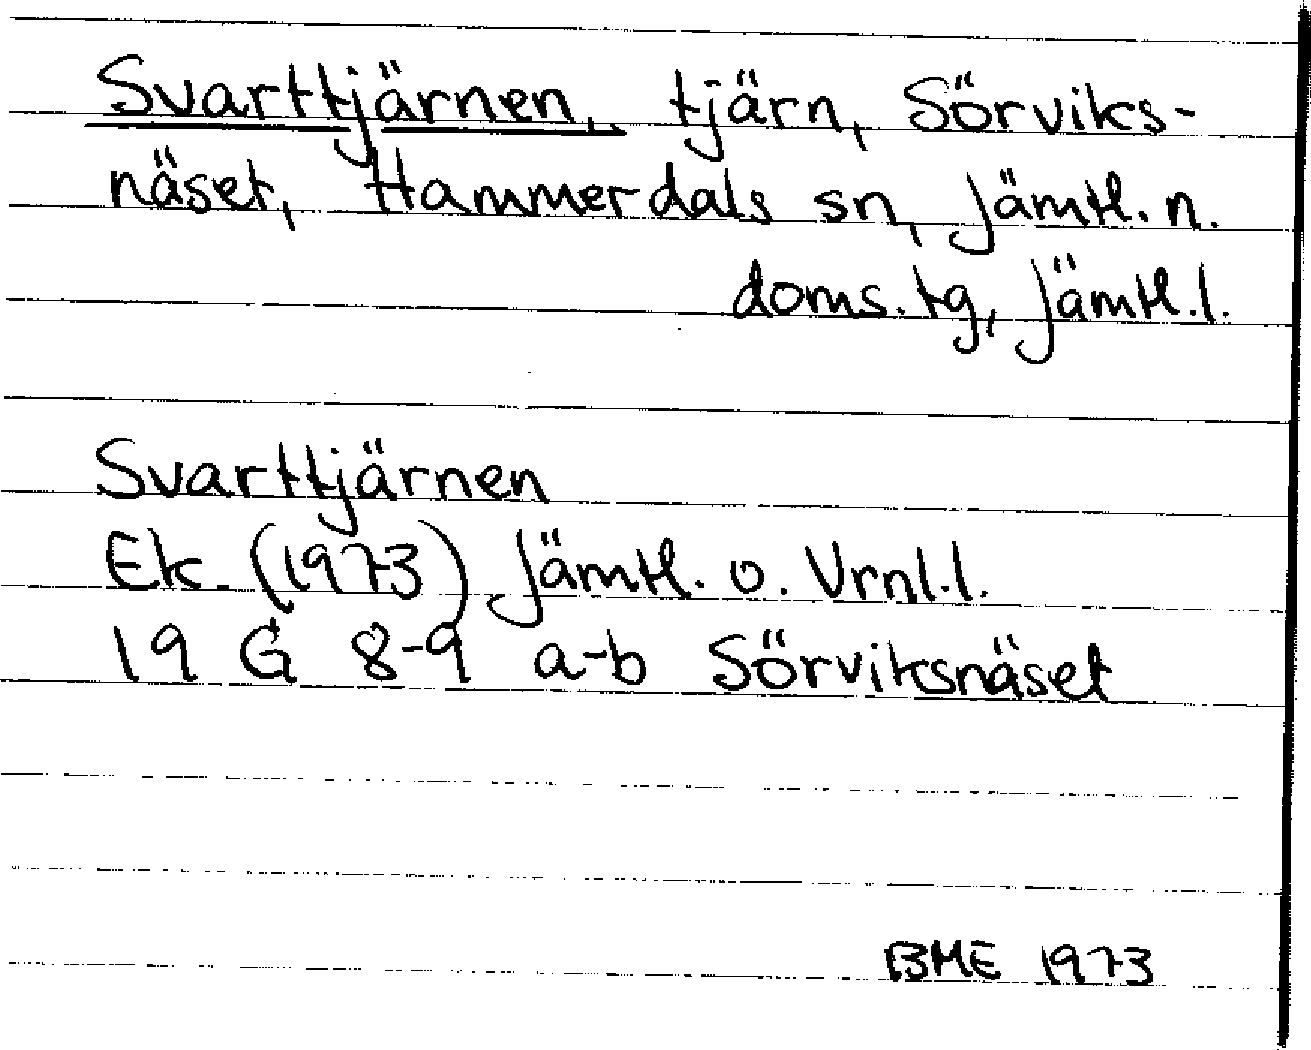 Svarttjärnen, tjärn, Sörviks-
näset, Hammerdals sn, Jämtl. n.
doms.tg, Jämtl.l.
Svarttjärnen
Ek. (1973) Jämtl. o. Vrnl.l.
19 G 8-9 a-b Sörviksnäset
BME 1973